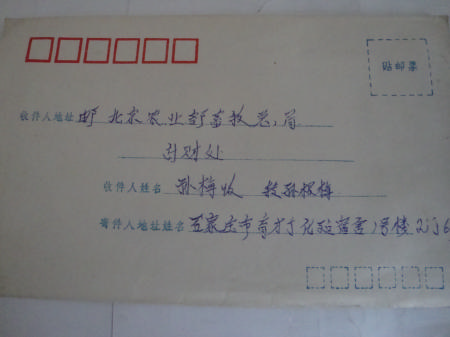 贴邮票
收件人地址 邮 北京农业部畜牧总局
计财处
收件人姓名 孙梅收 转孙
寄件人地址姓名 石家庄市育才 宿舍1号楼2门6